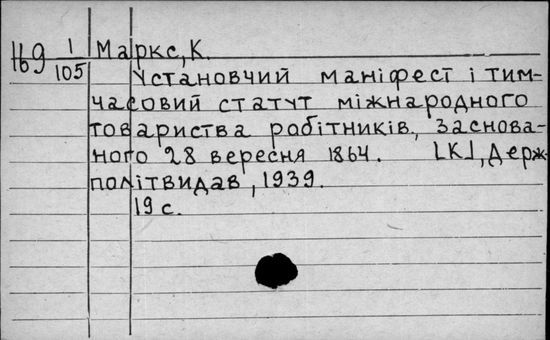 169 1/105 Маркс, К.
Установчий маніфест і тим-
часовий статут міжнародного
товариства робітників, заснова-
ного 28 вересня 1864. [К], Держ-
політвидав, 1939.
19 с.